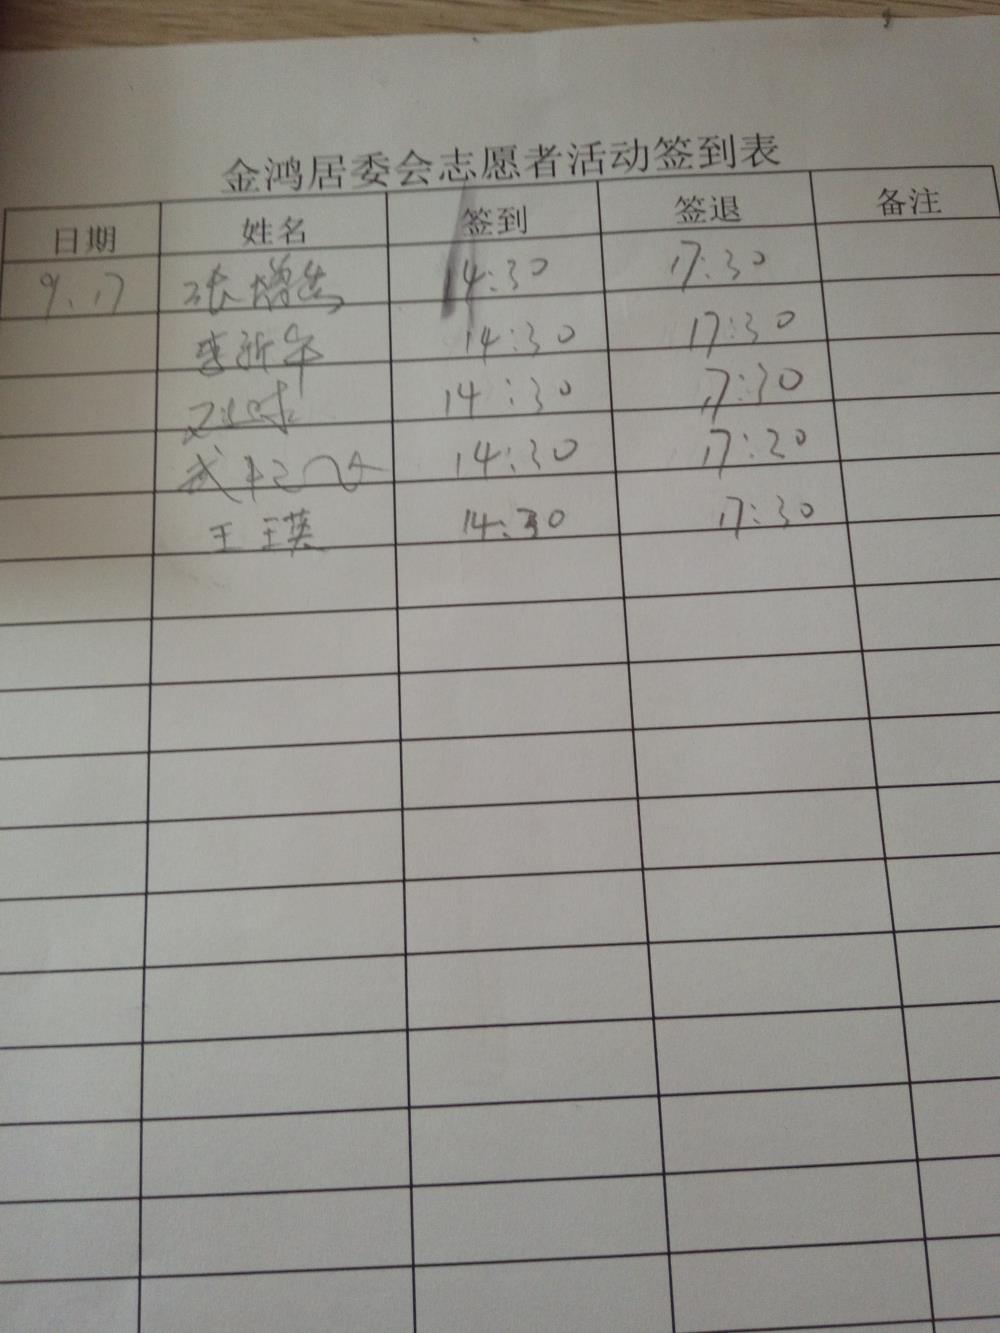 金鸿居委会志愿者活动签到表
日期 姓名 签到 签退 备注
9.17 张增 14:30 17:30
李新年 14:30 17:30
14:30 17:30
武 14:30 17:20
王 王英 14:30 17:30